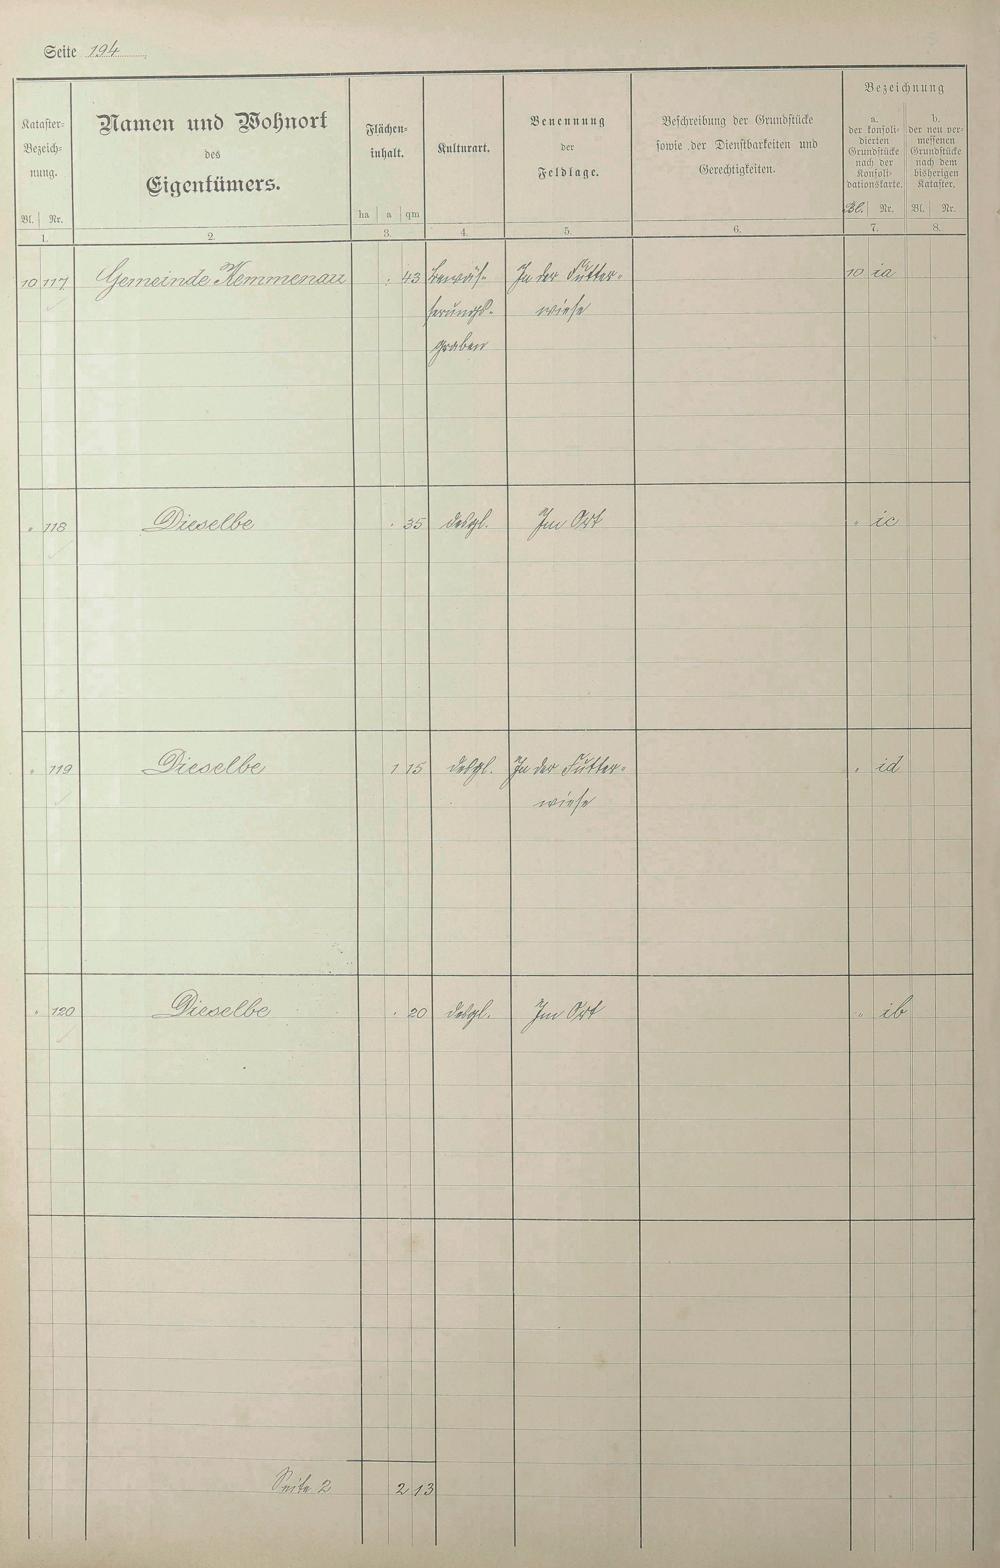 Seite 194
Kataster-
Bezeich-
nung.
Bl. Nr.
1.
Namen und Wohnort
des
Eigentümers.
2.
Flächen-
inhalt.
ha a qm
3.
Kulturart.
4.
Benennung
der
Feldlage.
5.
Beschreibung der Grundstücke
sowie der Dienstbarkeiten und
Gerechtigkeiten.
6.
Bezeichnung
a.
der konsoli-
dierten
Grundstücke
nach der
Konsoli-
dationskarte.
Bl. Nr.
7.
b.
der neu ver-
messenen
Grundstücke
nach dem
bisherigen
Kataster.
Bl. Nr.
8.
10 117 Gemeinde Kemmenau . 43 Bewäs- In der Futter- 10 ia
serungs- wiese
graben
" 118 Dieselbe . 35 desgl. Im Ort " ic
" 119 Dieselbe 1 15 desgl. In der Futter- " id
wiese
" 120 Dieselbe . 20 desgl. Im Ort " ib
Seite 2 2 13